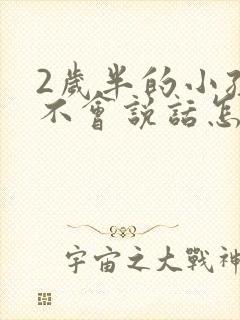 2歲半的小孩
不會說話怎
宇宙之大戰神